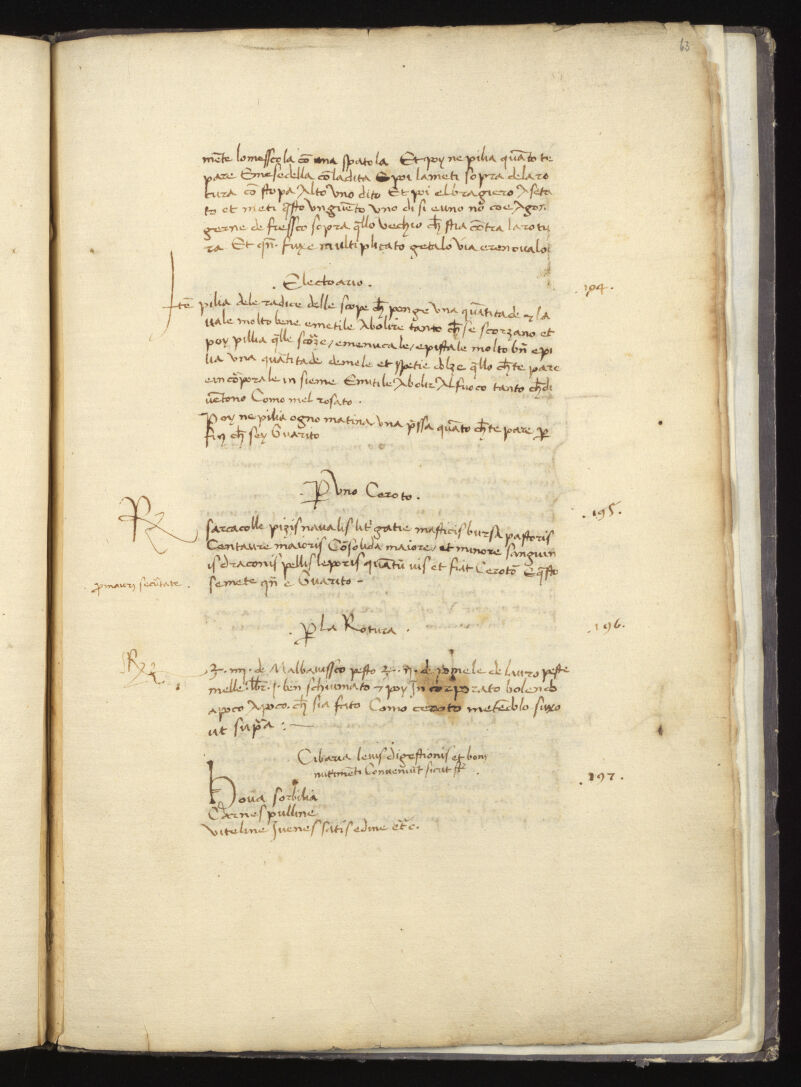 63
mēte lo messcola cō una spatola Et poy ne pilia quāto te
pare Emesedella cō la dita E poi la meti sopra de la ro
tura cō stopa Alto uno dito Et poi el bragiero Aseta
to et meti q̄sto vnguēto uno di si e uno nō coe Agon
gerne de fressco sopra q̄llo vechio ch̄ stia cōtra la rotu
ra Et qn̄ fuxe multiplicato getalo via e renovalo
. Electoario .
. 194 .
Itē pilia dele radice delle scope ch̄ ponge una quātitade & la
vale molto bene e metile Abolire tanto ch̄ se scorzano et
poy pillia q̄lle scorze / e menucale / e pistale molto bn̄ e pi
lia una quātitade de mele et spetie dolze q̄llo ch̄ te pare
e incorporale insieme E mitile Abolir Al fuoco tanto ch̄ di
vētono Como mel rosato .
Poy ne pilia ogno matina una p̄ssa quāto ch̄ te pare p̄
fin ch̄ sey Guarito
. P̄ uno Ceroto .
. 195 .
R̄
sarcacolle pizis navalis lit̄gatie masticis bursa pastoris
Centauree maioris Cōsolida maiore / et minore sanguin
is draconis pellis leporis quātū vis et fiat Cerotō E q̄sto
se mete qn̄ e Guarito -
. P̄ la Rotura .
. 196 .
R̄
ʒ . iiij . de Malbavissco pesto ʒ . ij . de pomele de lauro peste
melle . lbr . j . ben schiumato & poy Incorporato bolendo
apoco Apoco . ch̄ sia fato Como ceroto metēdolo suxo
ut sup̄a :
Cibaria levis digestionis et boni
nutrimēti Conveniūt sicut st̄
. 197 .
Hova sorbilia
Carnes pulline
viteline Iuenes satis edine etc̄ .